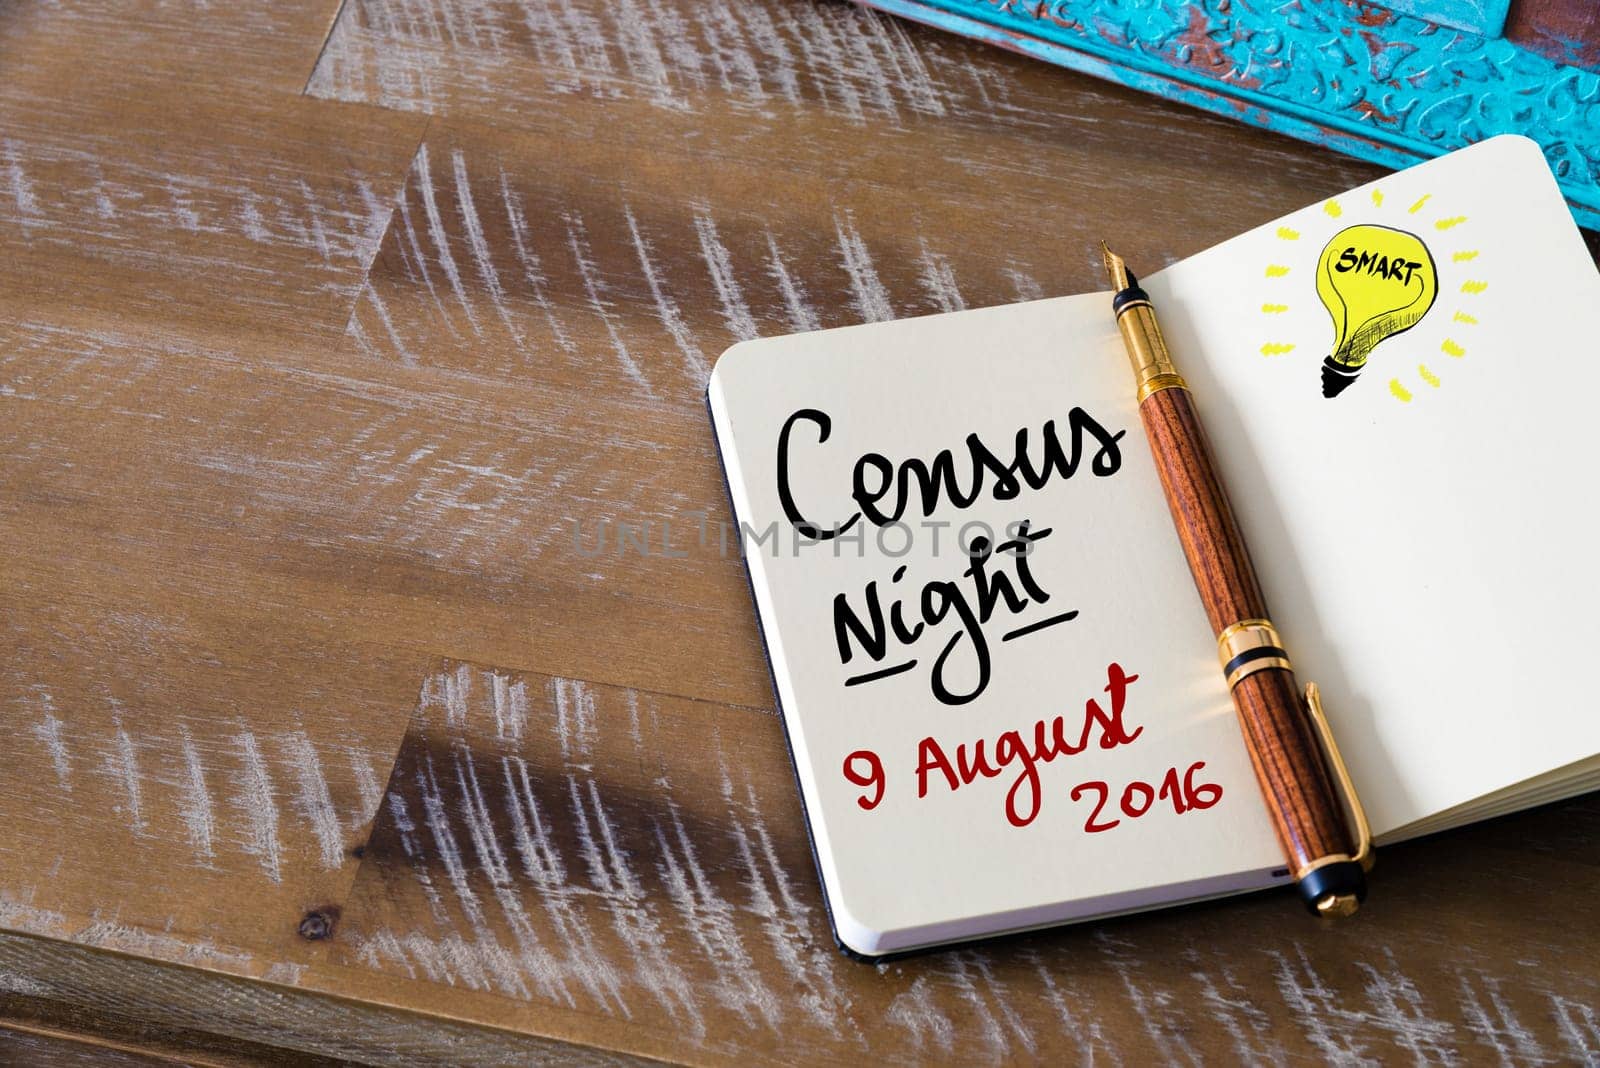 SMART
Census
Night
9 August
2016
UNLIMPHOTOS